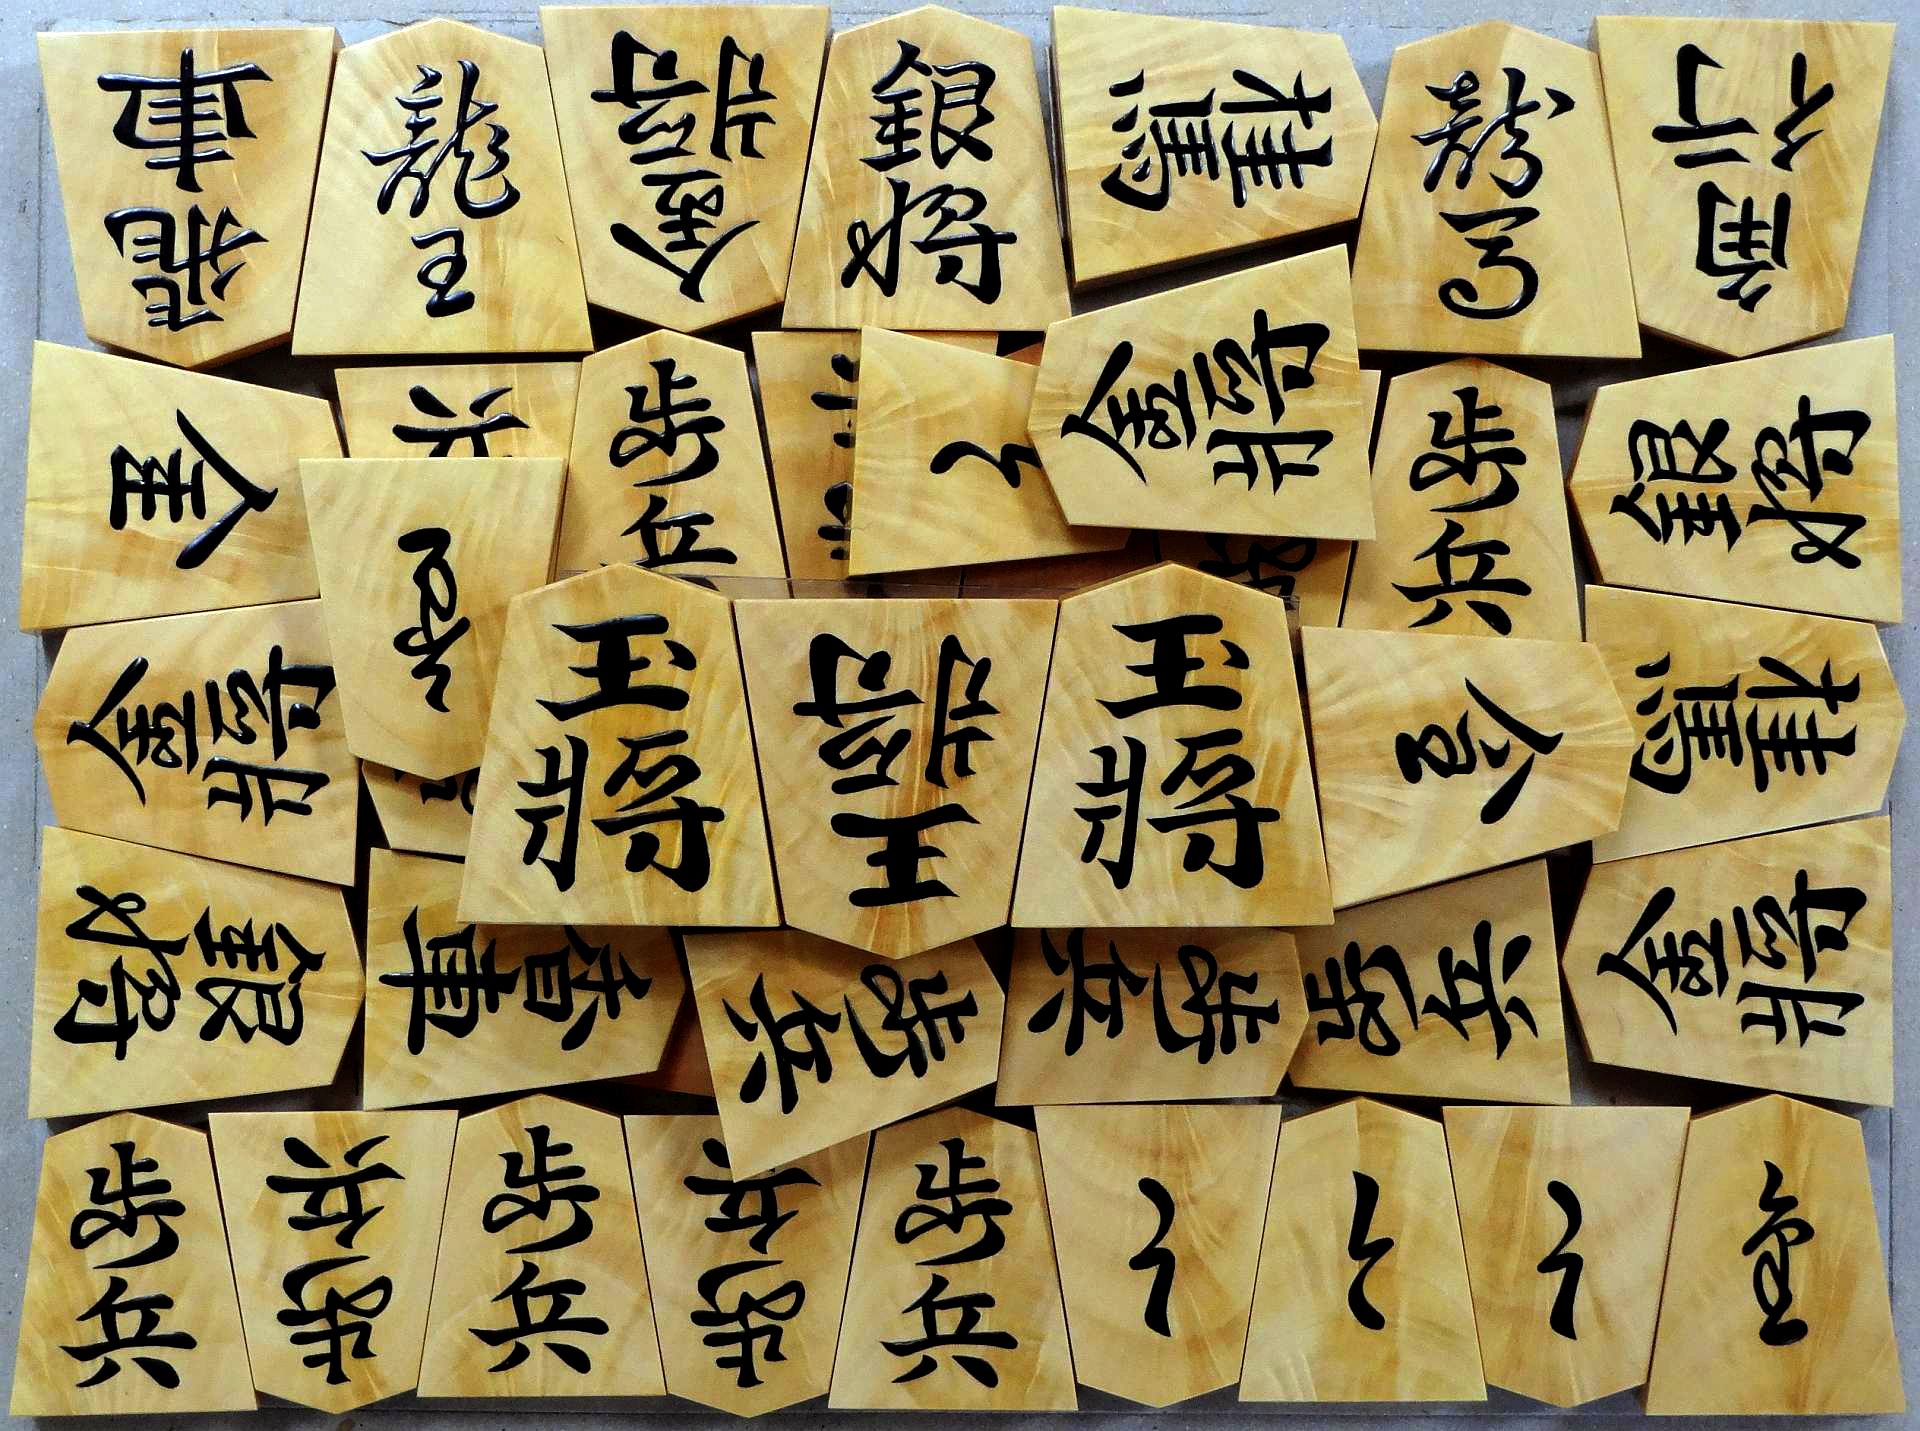 飛車
龍王
金將
銀将
桂馬
龍馬
香
金
歩兵
と
金將
歩兵
銀将
金將
玉將
王將
玉將
桂馬
銀将
香車
歩兵
歩兵
歩兵
金將
歩兵
歩兵
歩兵
歩兵
歩兵
と
と
と